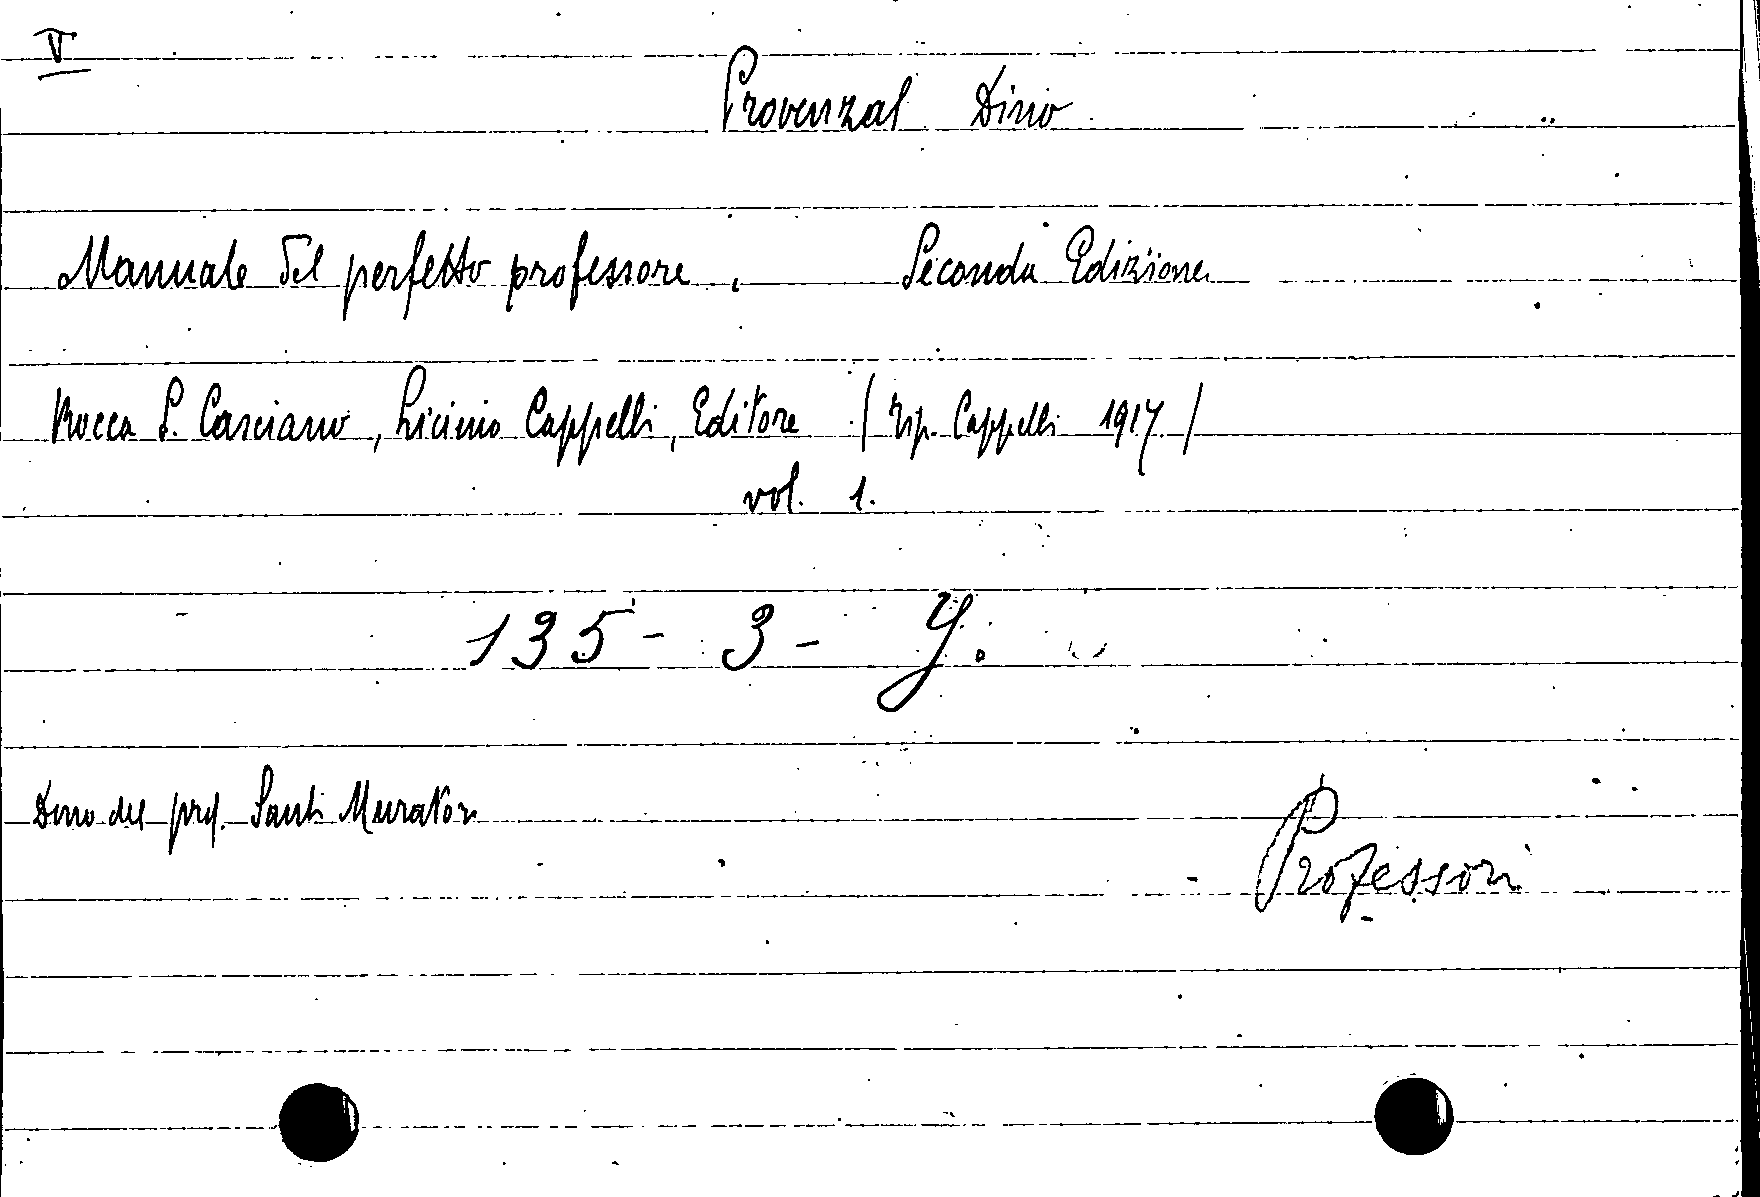 V
Provenzal Dino
Manuale del perfetto professore, Seconda Edizione
Rocca S. Casciano, Licinio Cappelli, Editore (Tip. Cappelli 1917)
vol. 1.
135 - 3 - Y.
Dono del prof. Santi Muratori
Professori